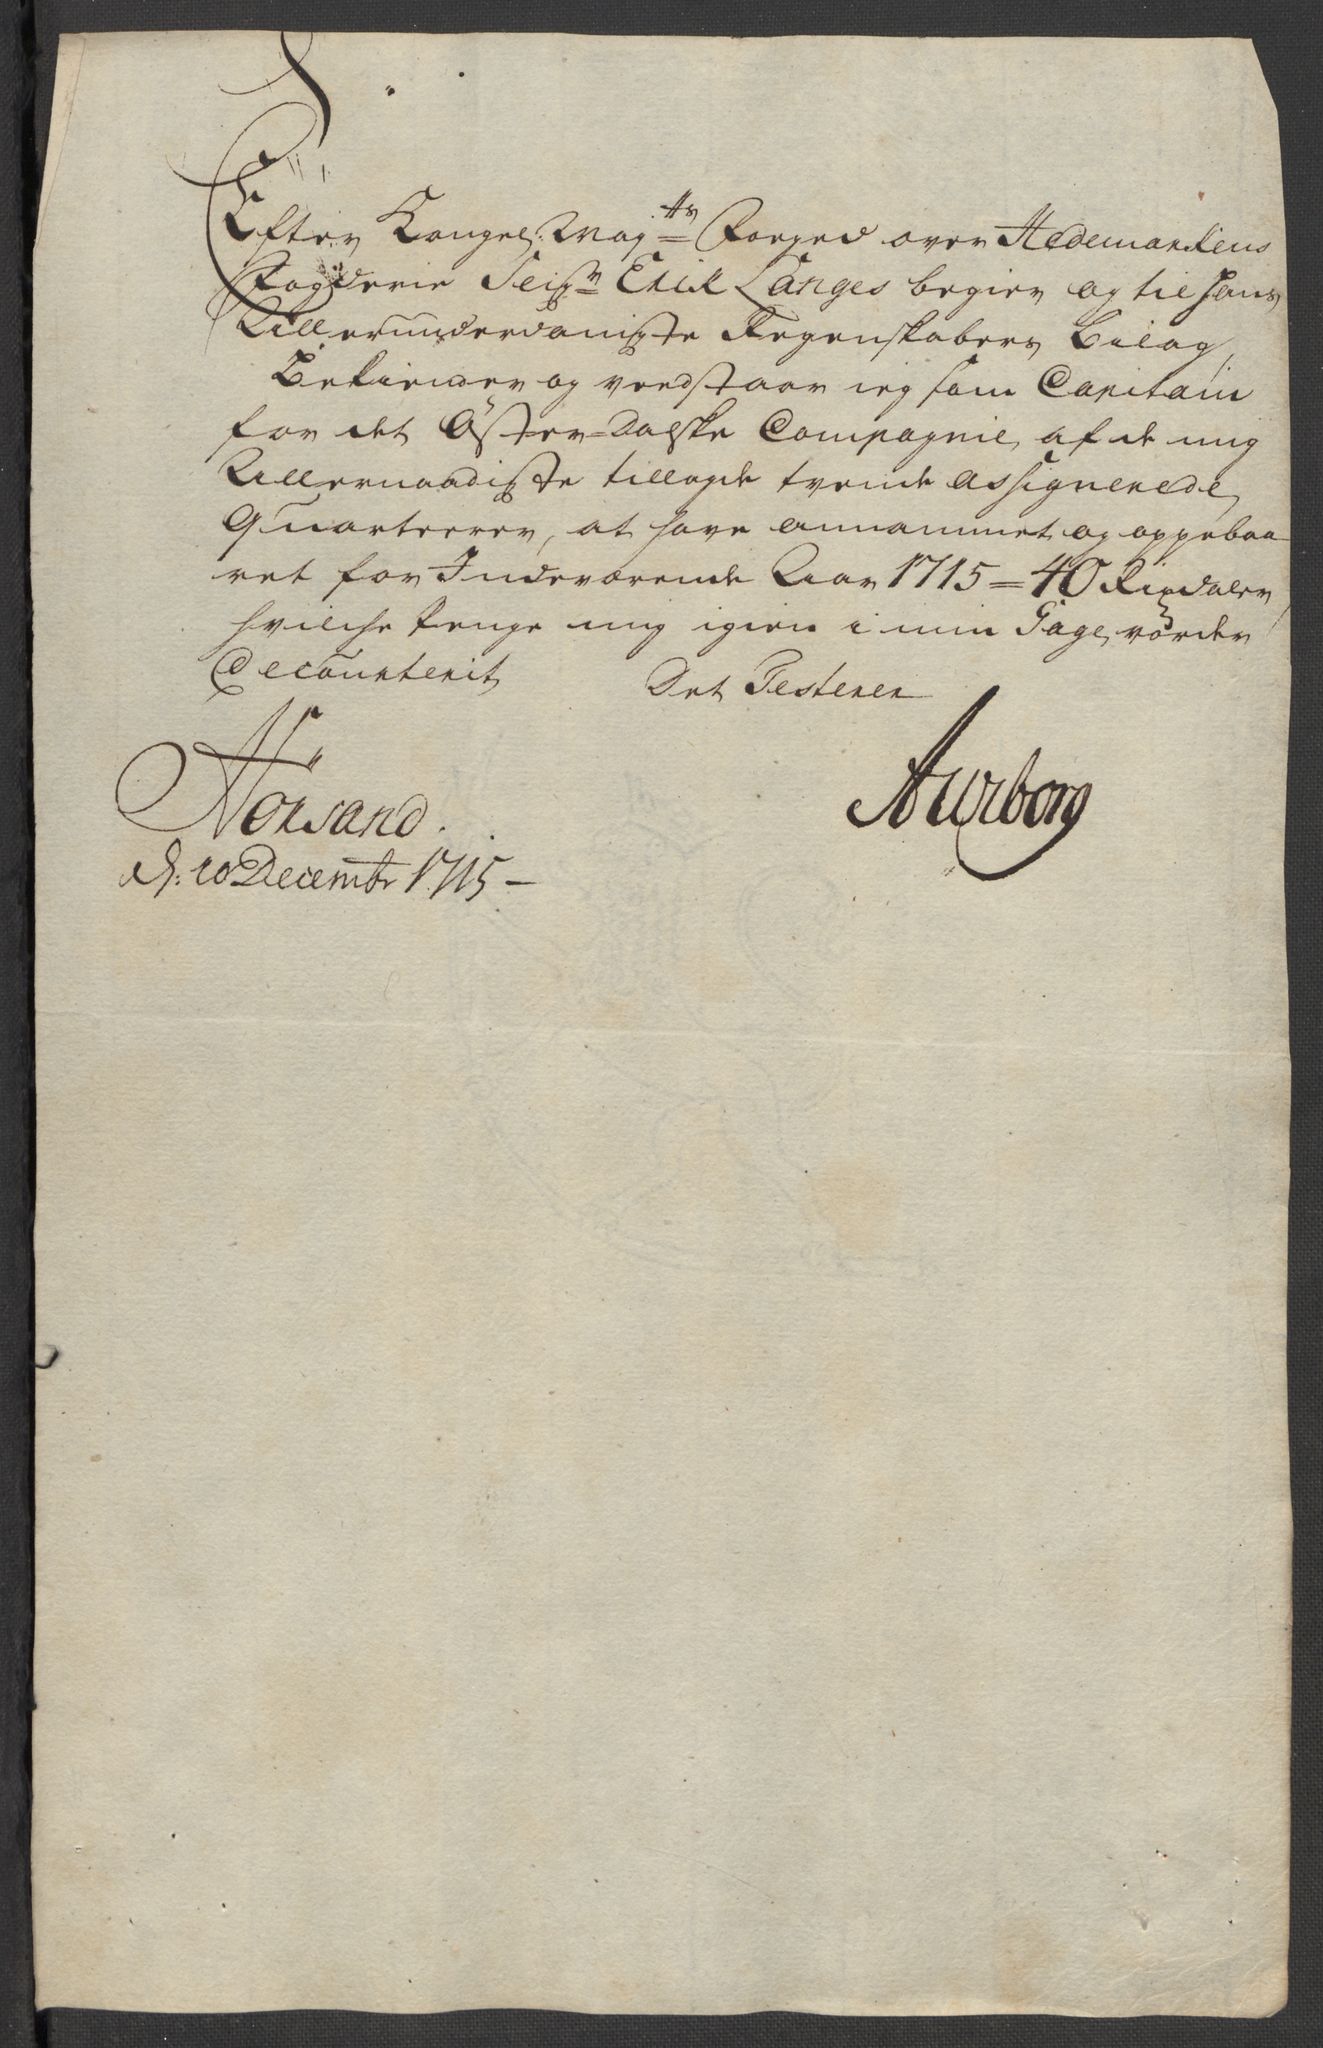 Efter Kongel: May.ts Foeged over Hedemarkens
Fogderie Seig.r Erick Langes begier og til hans
Allerunderdanigste Regenskabers bilag,
Bekiender og vedstaar ieg som Capitain
for det Øster-Dalske Compagnie, af de mig
Allernaadigste tillagde tvende assignerede
Quarteerer, at have annammet og oppebaa-
ret for Indeværende Aar 1715 = 40 Rixdaler,
hvilche Penge mig igien i min Gage vorder
Decourterit, Det Testerer
Aurborg
Norsand.
d: 10 Decembr 1715 —